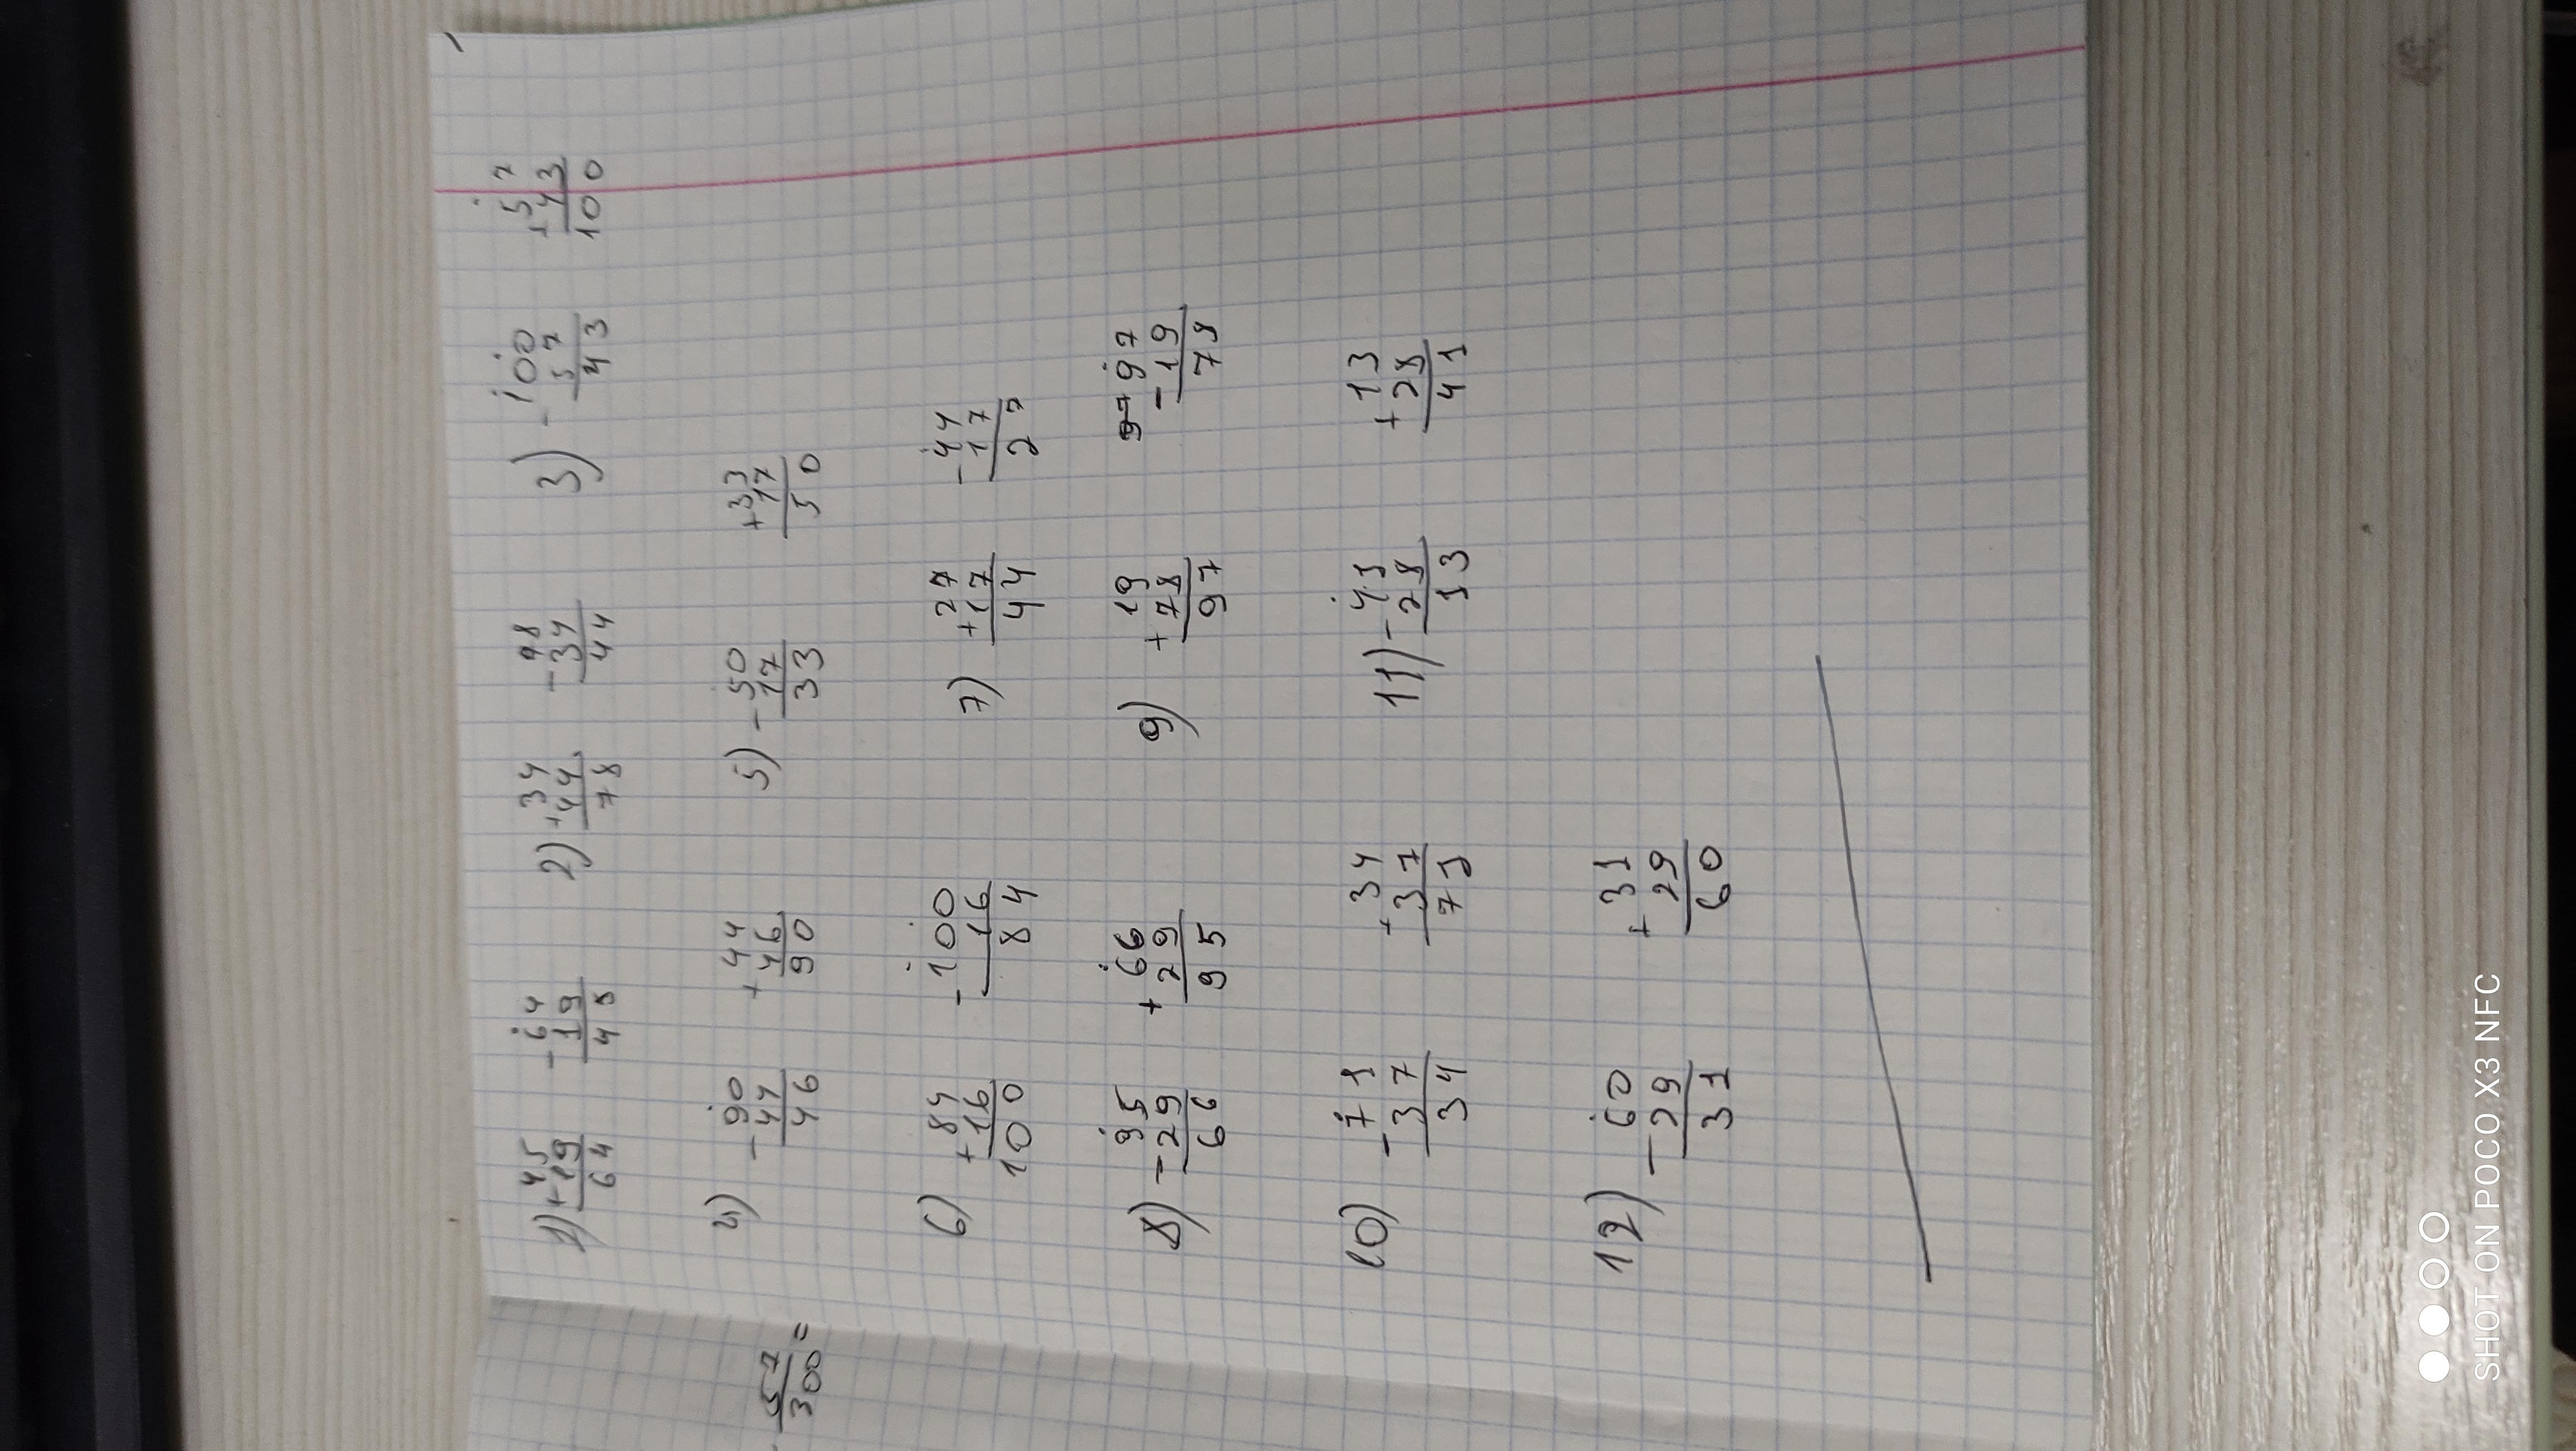 1) +45 -64 2) +34 -78 3) -100 +57
19 19 44 34 57 43
64 45 78 44 43 100
4) -90 +44 5) -50 +33
44 46 17 17
46 90 33 50
6) +84 -100 7) +27 -44
16 16 17 17
100 84 44 27
8) -95 +66 9) +19 97 -97
29 29 78 19
66 95 97 78
10) -71 +34 11) -41 +13
37 37 28 28
34 71 13 41
12) -60 +31
29 29
31 60
57
300=
SHOT ON POCO X3 NFC